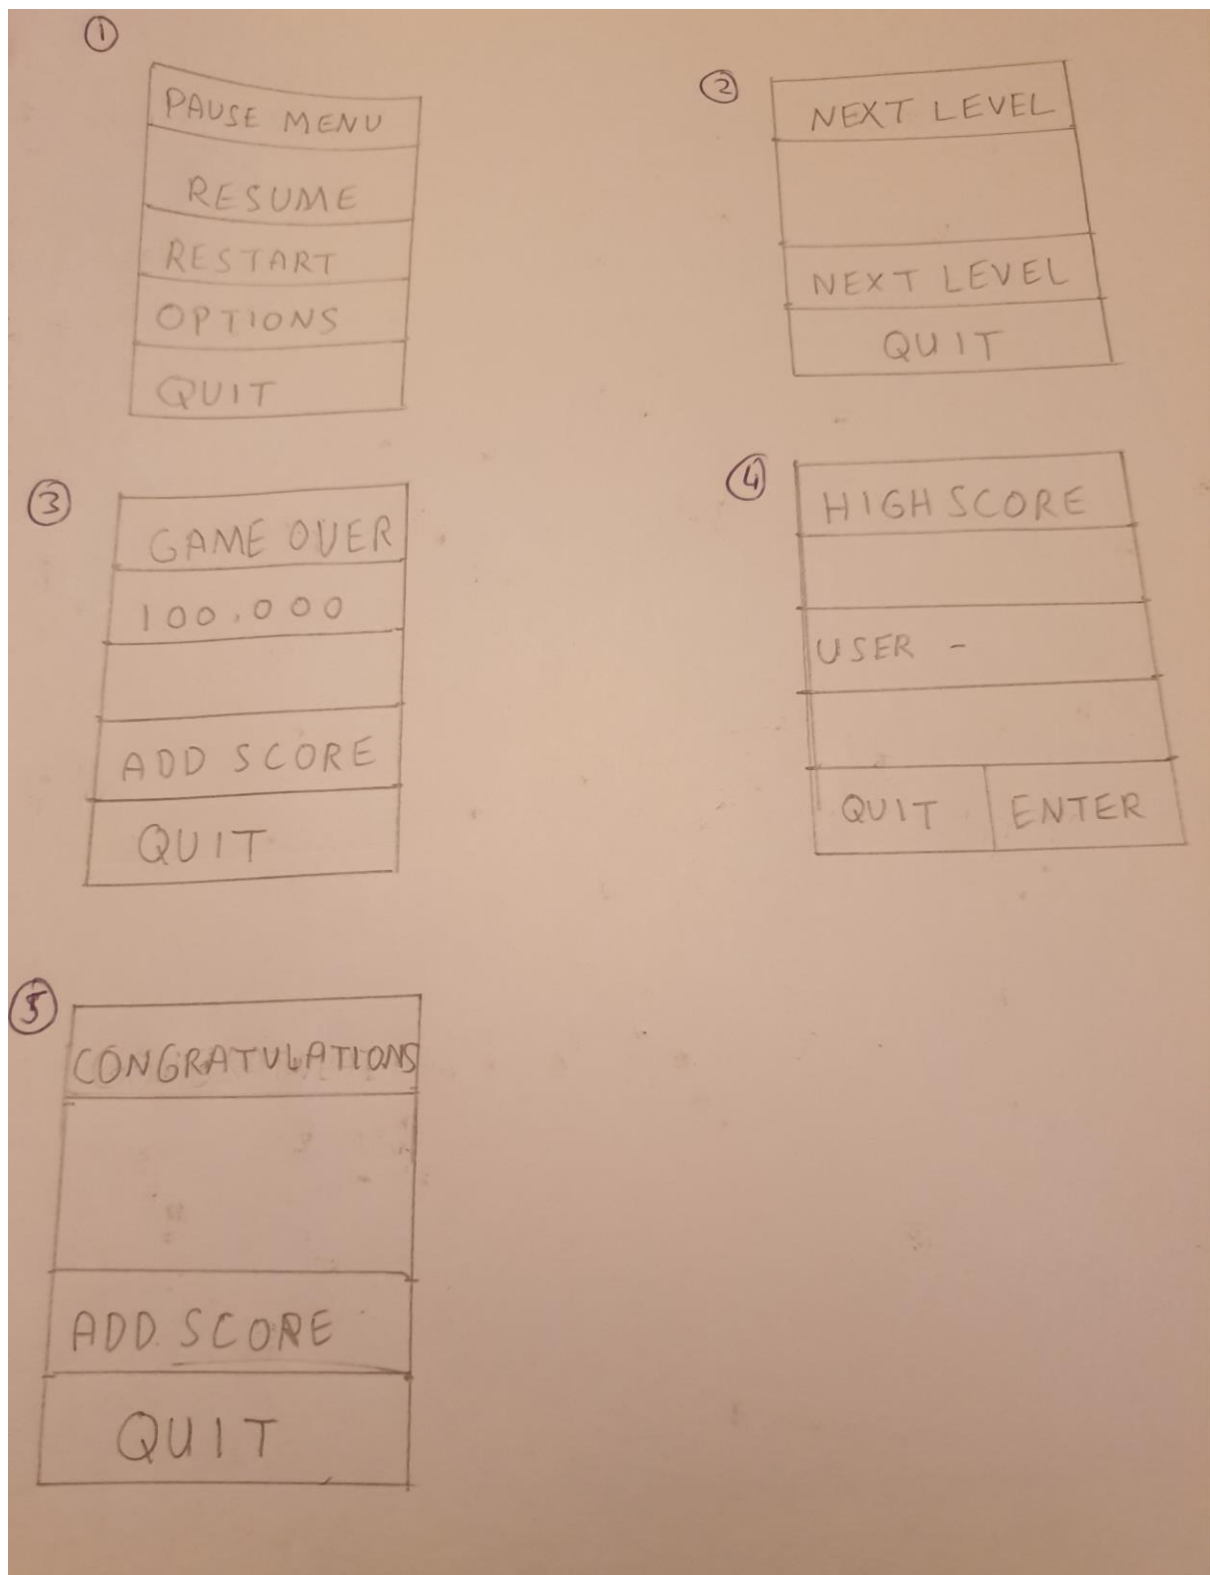 1
PAUSE MENU
RESUME
RESTART
OPTIONS
QUIT
2
NEXT LEVEL
NEXT LEVEL
QUIT
3
GAME OVER
100,000
ADD SCORE
QUIT
4
HIGH SCORE
USER -
QUIT ENTER
5
CONGRATULATIONS
ADD SCORE
QUIT